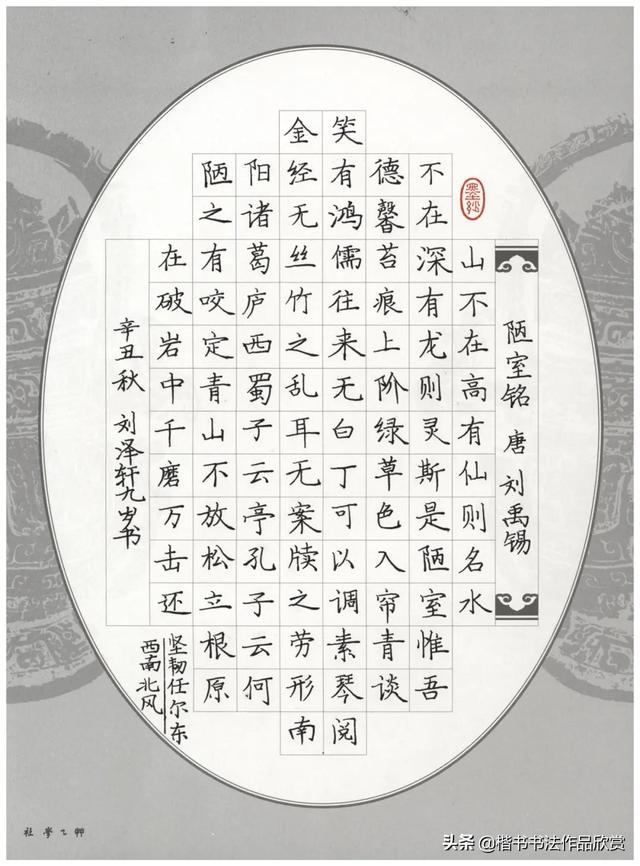 陋室铭 唐 刘禹锡
山不在高有仙则名水
不在深有龙则灵斯是陋室惟吾
德馨苔痕上阶绿草色入帘青谈
笑有鸿儒往来无白丁可以调素琴阅
金经无丝竹之乱耳无案牍之劳形南
阳诸葛庐西蜀子云亭孔子云何
陋之有咬定青山不放松立根原
在破岩中千磨万击还
坚韧任尔东
西南北风
辛丑秋 刘泽轩九岁书
头条 @楷书书法作品欣赏